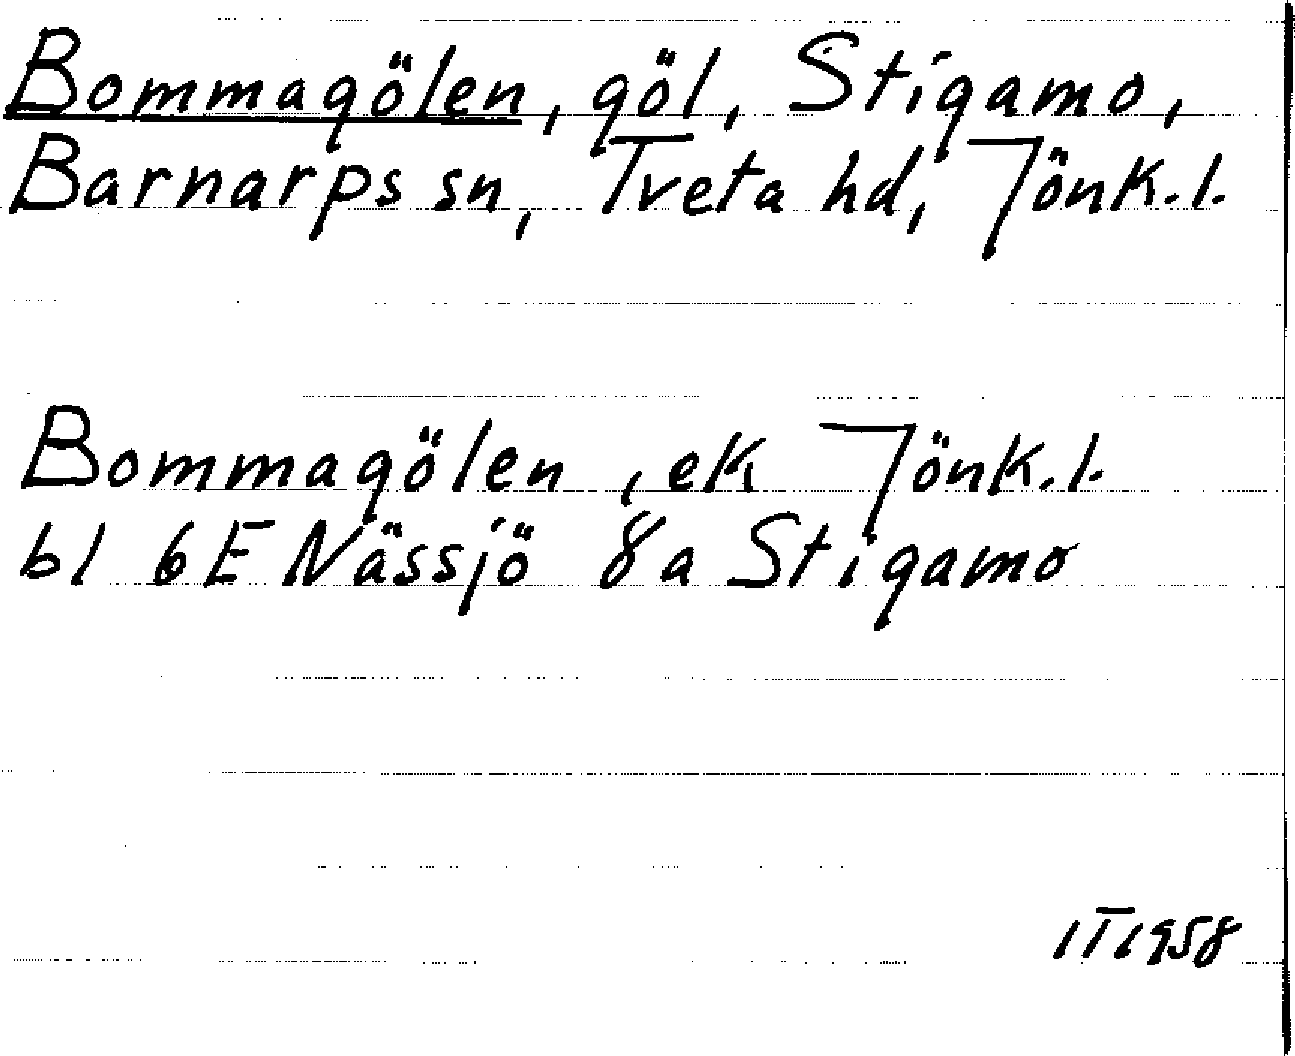 Bommagölen, göl, Stigamo,
Barnarps sn, Tveta hd, Jönk.l.
Bommagölen, ek Jönk.l.
bl 6E Nässjö 8a Stigamo
1958